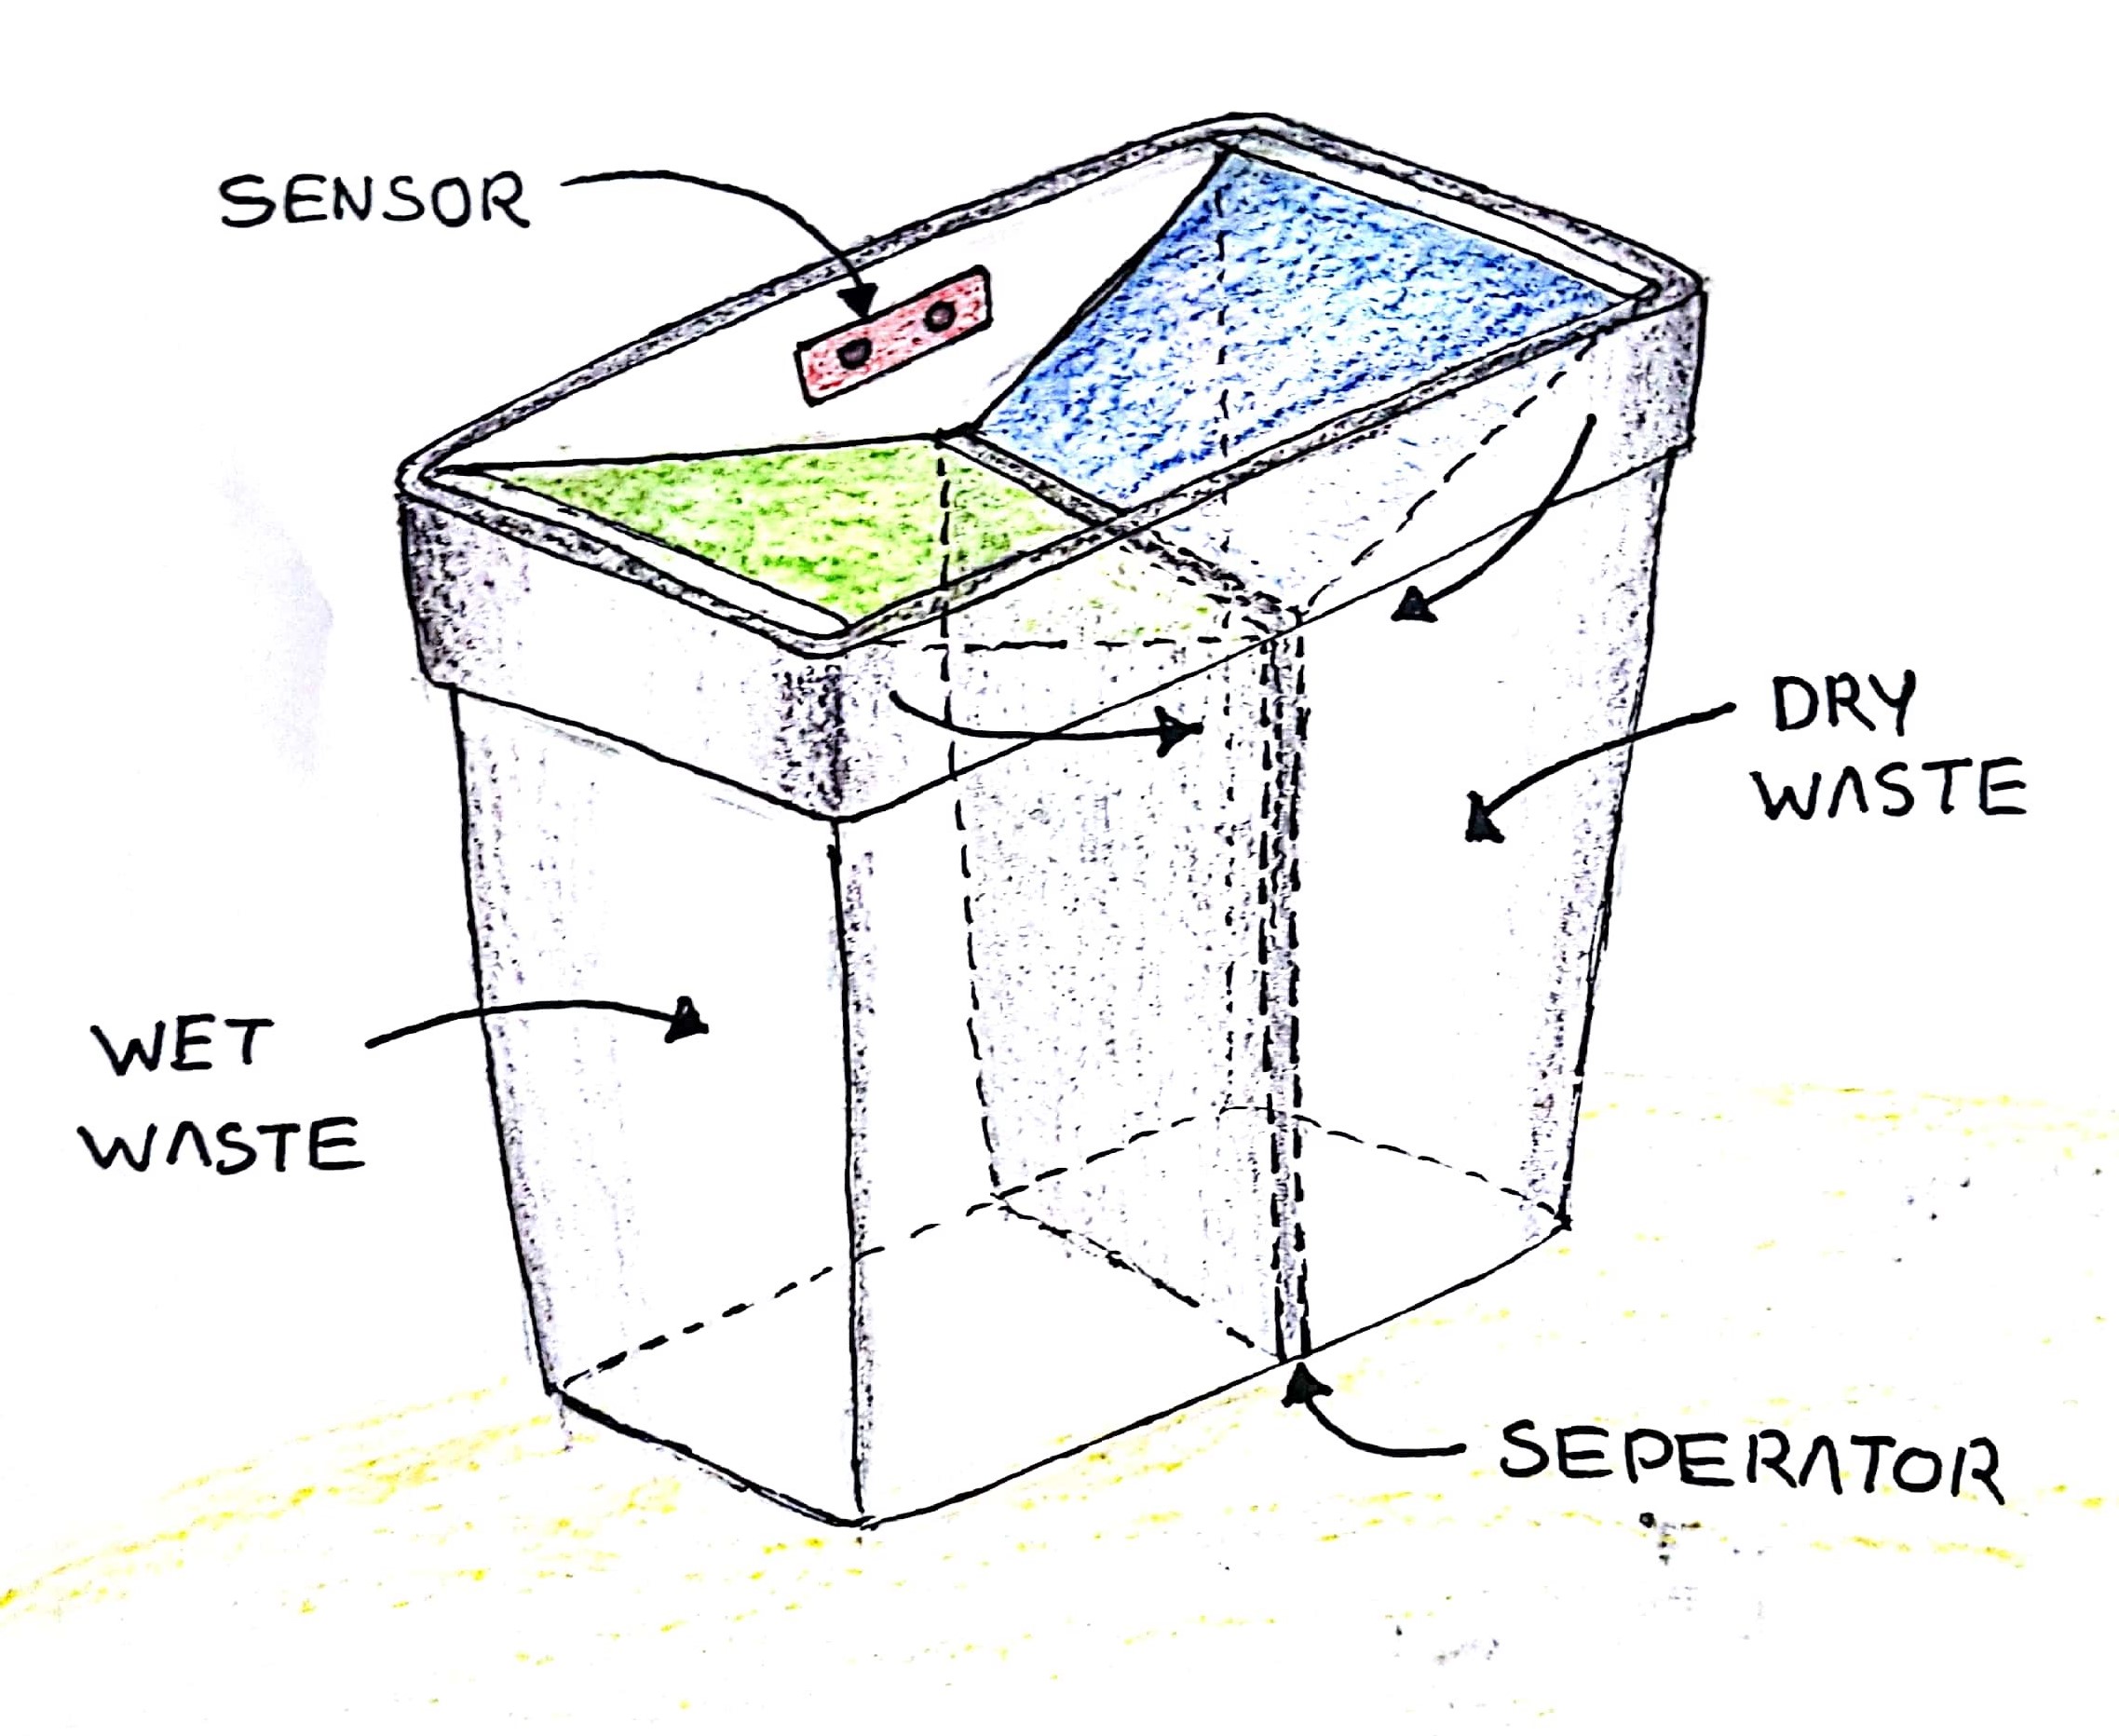 SENSOR
DRY
WASTE
WET
WASTE
SEPERATOR